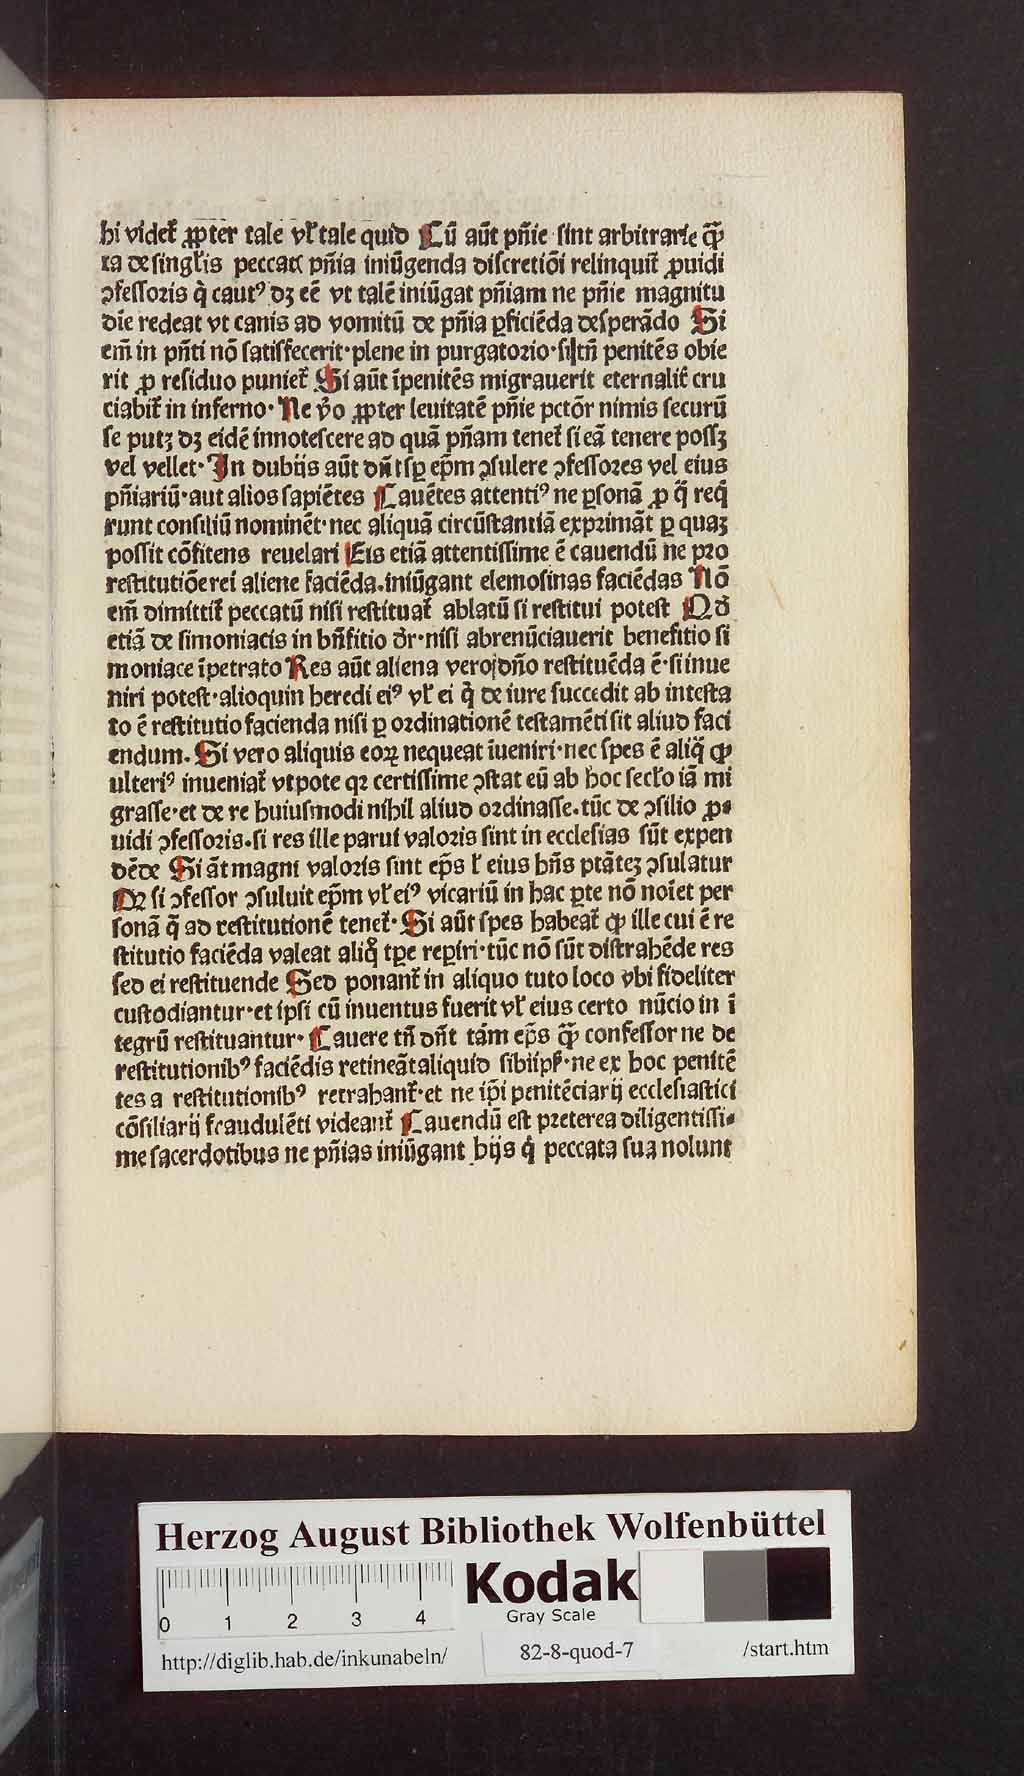 bi videt᷑ ꝓpter tale vl᷑ tale quid Cū aūt pn̄ie sint arbitrarie qꝫ̄
ta de singl᷑is peccat pn̄ia iniūgenda discretiōi relinquit᷑ ꝓuidi
ↄfessoris q̇ caut⁹ dꝫ eē vt talē iniūgat pn̄iam ne pn̄ie magnitu
dīe redeat vt canis ad vomitū de pn̄ia ꝑficiēda desperādo Si
em̄ in pn̄ti nō satisfecerit·plene in purgatorio·si tn̄ penitēs obie
rit ꝓ residuo puniet᷑ Si aūt īpenitēs migrauerit eternalit᷑ cru
ciabit᷑ in inferno· Ne v̄o ꝓpter leuitatē pn̄ie pctōr nimis securū
se putꝫ dꝫ eidē innotescere ad quā pn̄am tenet᷑ si eā tenere possꝫ
vel vellet· In dubijs aūt dn̄t sꝑ ep̄m ↄsulere ↄfessores vel eius
pn̄iariū·aut alios sapiētes Cauētes attenti⁹ ne ꝑsonā ꝓ q̄ req̇
runt consiliū nominēt·nec aliquā circūstantiā exprimāt ꝑ quaꝫ
possit cōfitens reuelari Eis etiā attentissime ē cauendū ne pro
restitutiōe rei aliene faciēda.iniūgant elemosinas faciēdas Nō
em̄ dimittit᷑ peccatū nisi restituat᷑ ablatū si restitui potest Qd̄
etiā de simoniacis in bn̄fitio dr̄·nisi abrenūciauerit benefitio si
moniace īpetrato Res aūt aliena vero dn̄o restituēda ē·si inue
niri potest·alioquin heredi ei⁹ vl᷑ ei q̇ de iure succedit ab intesta
to ē restitutio facienda nisi ꝑ ordinationē testamēti sit aliud faci
endum. Si vero aliquis eoꝝ nequeat īueniri·nec spes ē aliq̄ ꝙ
ulteri⁹ inueniat᷑ vtpote qꝛ certissime ↄstat eū ab hoc secl᷑o iā mi
grasse·et de re huiusmodi nihil aliud ordinasse.tūc de ↄsilio ꝓ⸗
uidi ↄfessoris.si res ille parui valoris sint in ecclesias sūt expen
dēde Si āt magni valoris sint ep̄s l᷑ eius hn̄s ptāteꝫ ↄsulatur
Qꝛ si ↄfessor ↄsuluit ep̄m vl᷑ ei⁹ vicariū in hac ꝑte nō noīet per
sonā q̄ ad restitutionē tenet᷑· Si aūt spes habeat᷑ ꝙ ille cui ē re
stitutio faciēda valeat aliq̊ tꝑe reꝑiri·tūc nō sūt distrahēde res
sed ei restituende Sed ponant᷑ in aliquo tuto loco vbi fideliter
custodiantur·et ipsi cū inuentus fuerit vl᷑ eius certo nūcio in ī
tegrū restituantur· Cauere tn̄ dn̄t tám ep̄s qꝫ̄ confessor ne de
restitutionib⁹ faciēdis retineāt aliquid sibiip̄s·ne ex hoc penitē
tes a restitutionib⁹ retrahant᷑·et ne ip̄i penitēciarij ecclesiastici
cōsiliarij fraudulēti videant᷑ Cauendū est preterea diligentissi⸗
me sacerdotibus ne pn̄ias iniūgant hijs q̇ peccata sua nolunt
Herzog August Bibliothek Wolfenbüttel
Kodak
Gray Scale
0 1 2 3 4
http://diglib.hab.de/inkunabeln/ 82-8-quod-7 /start.htm